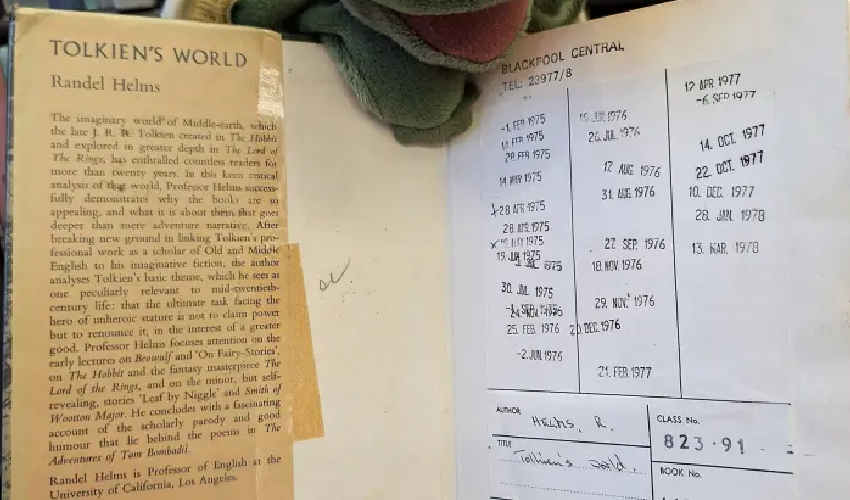 TOLKIEN'S WORLD
Randel Helms
The imaginary world of Middle-earth, which
the late J. R. R. Tolkien created in The Hobbit
and explored in greater depth in The Lord of
The Rings, has enthralled countless readers for
more than twenty years. In this keen critical
analysis of that world, Professor Helms success-
fully demonstrates why the books are so
appealing, and what it is about them that goes
deeper than mere adventure narrative. After
breaking new ground in linking Tolkien's pro-
fessional work as a scholar of Old and Middle
English to his imaginative fiction, the author
analyses Tolkien's basic theme, which he sees as
one peculiarly relevant to mid-twentieth-
century life: that the ultimate task facing the
hero of unheroic stature is not to claim power
but to renounce it, in the interest of a greater
good. Professor Helms focuses attention on the
early lectures on Beowulf and 'On Fairy-Stories',
on The Hobbit and the fantasy masterpiece The
Lord of the Rings, and on the minor, but self-
revealing, stories 'Leaf by Niggle' and Smith of
Wootton Major. He concludes with a fascinating
account of the scholarly parody and good
humour that lie behind the poems in The
Adventures of Tom Bombadil.
Randel Helms is Professor of English at the
University of California, Los Angeles.
BLACKPOOL CENTRAL
TEL: 23977/8
-1. FEB 1975
FEB 1975
28 FEB 1975
14 MAR 1975
28 APR 1975
28 APR 1975
1975
19. JUN 1975
JUL 1975
30. JUL 1975
25. FEB. 1976
-2. JUN. 1976
1976
26. JUL. 1976
12 AUG 1976
31. AUG 1976
27. SEP. 1976
18. NOV 1976
29. NOV. 1976
20 DEC. 1976
21. FEB 1977
12 APR 1977
-6. SEP 1977
14. OCT. 1977
22. OCT. 1977
10. DEC. 1977
28. JAN. 1978
13. MAR. 1978
AUTHOR
Helms, R.
TITLE
Tolkien's world.
CLASS No.
823.91
BOOK No.